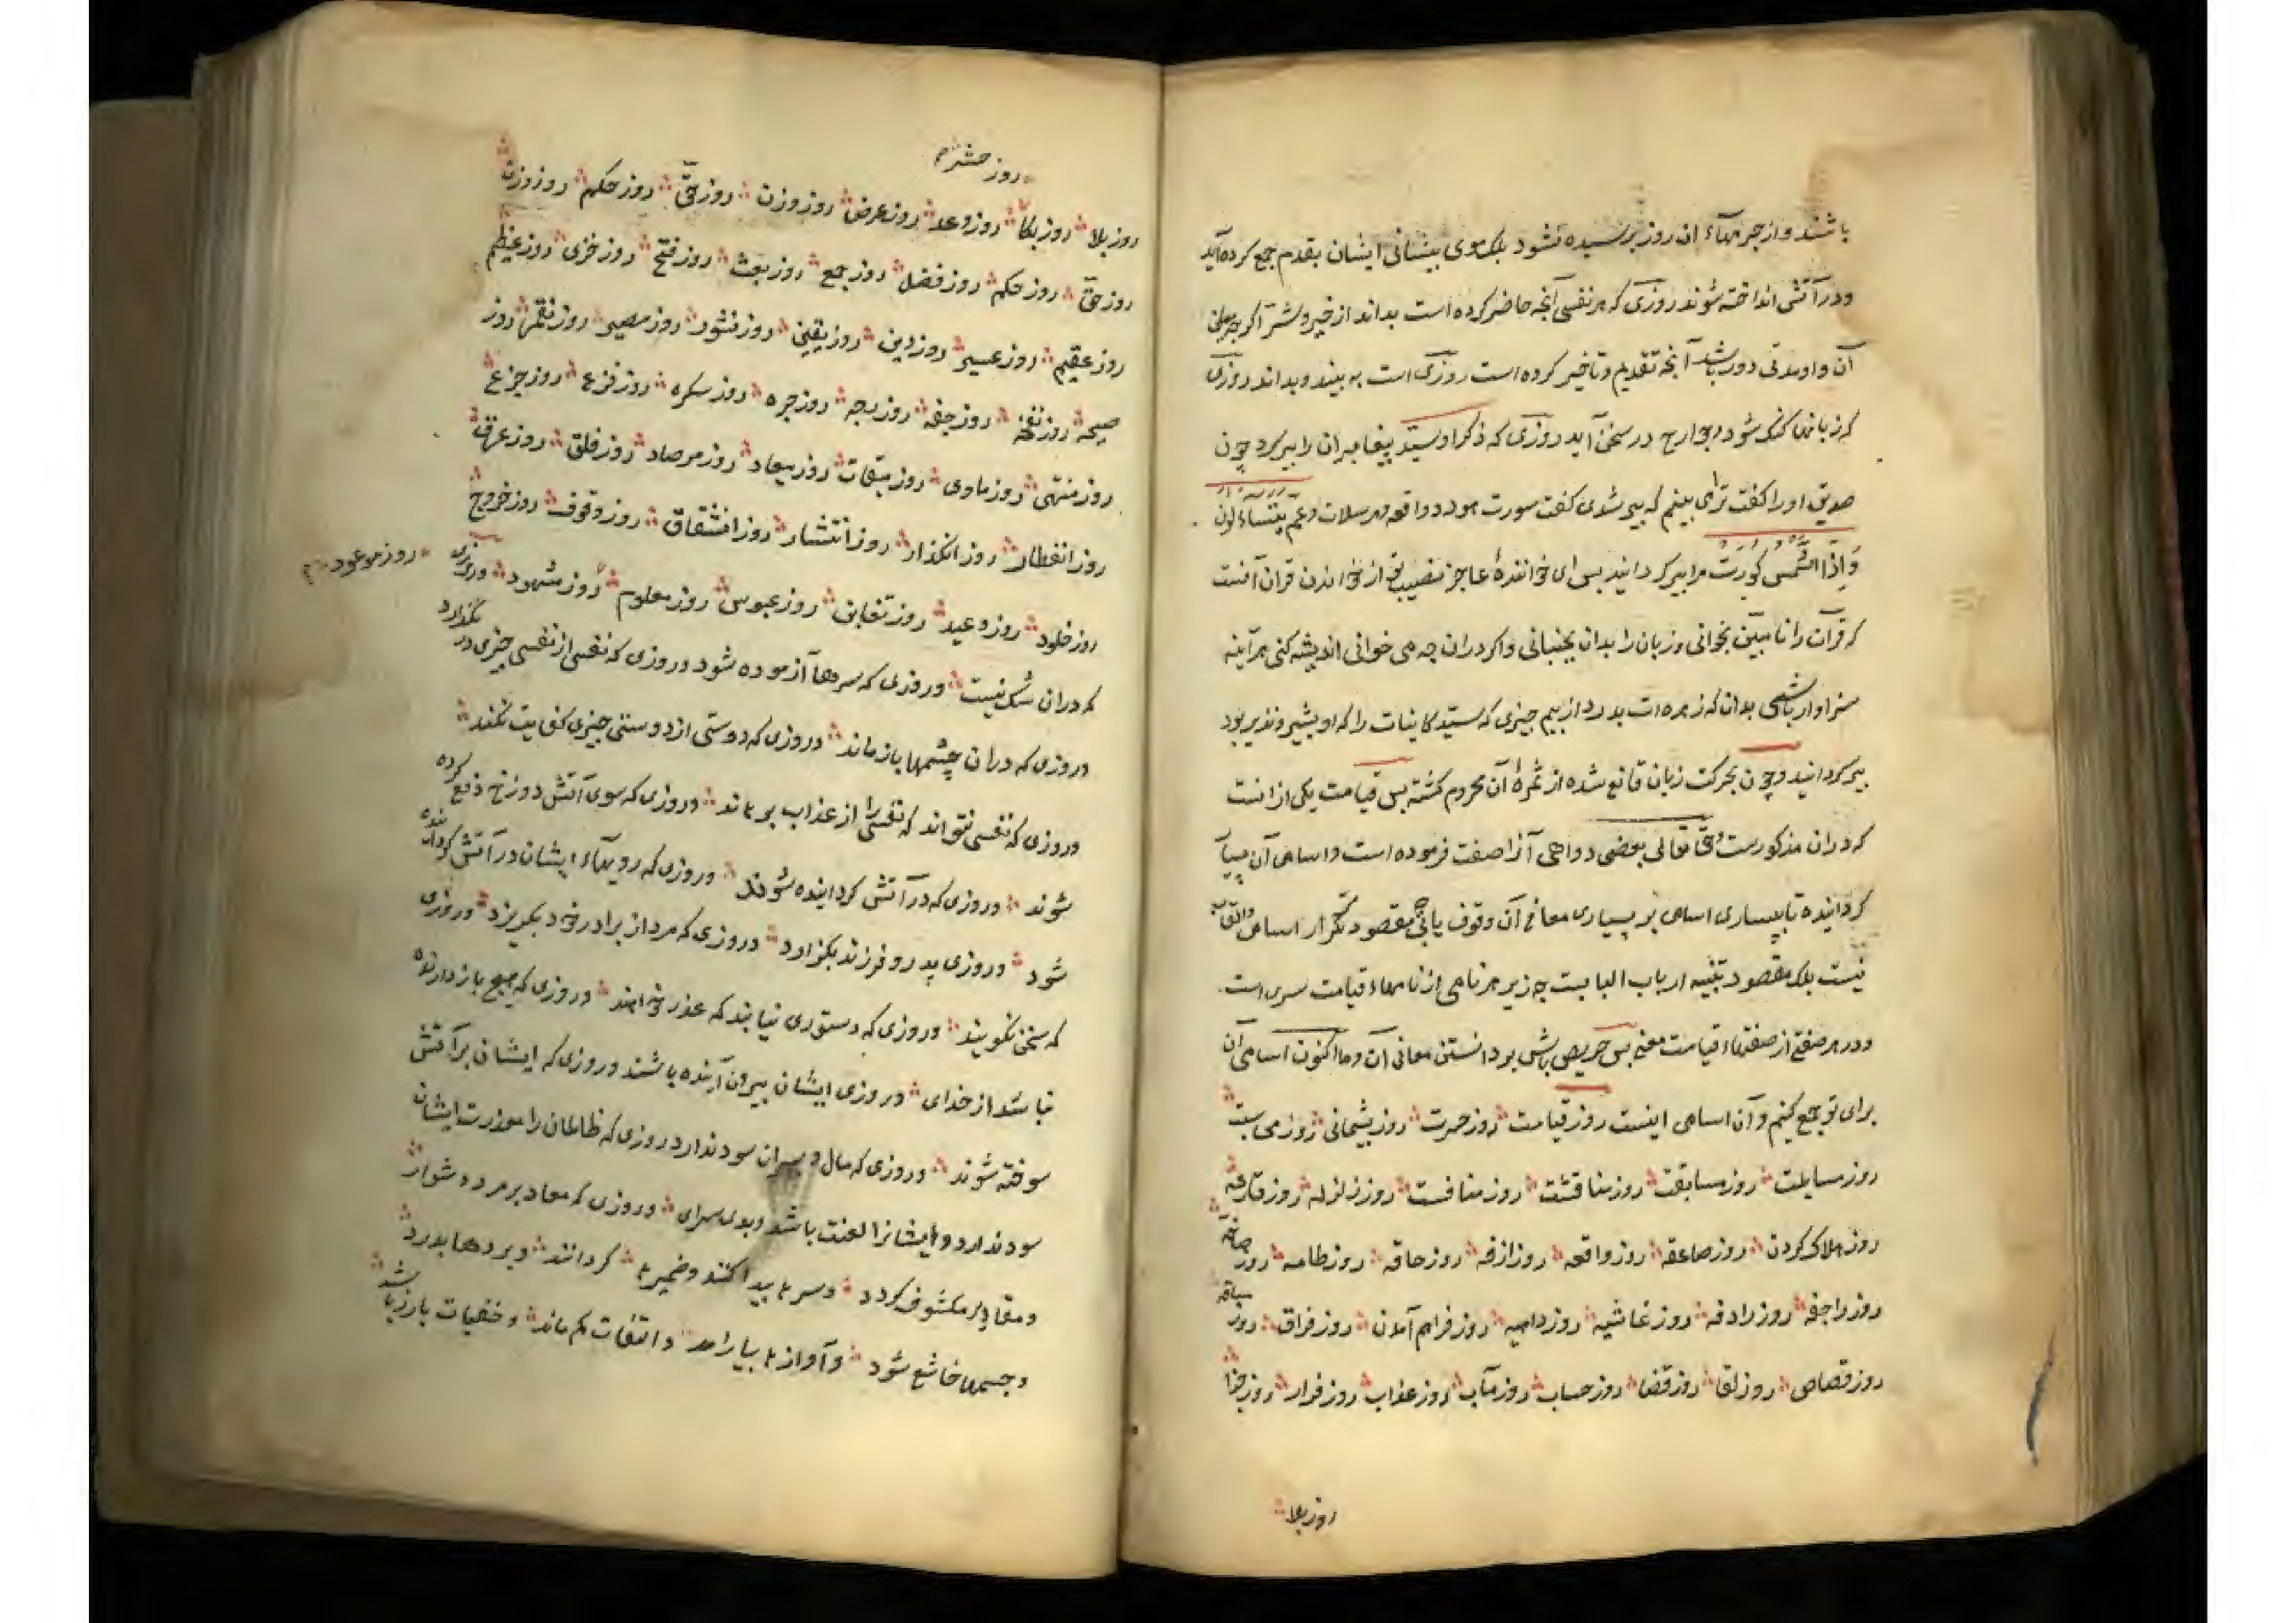 باشند و از جرمهاء ان روز پرسیده نشود بلک موی پیشانی ایشان بقدم جمع کرده آید
و در آتش انداخته شوند روزی که هر نفسی آنچه حاضر کرده است بداند از خیر و شر
آن و او مدتی دور باشد آنچه تقدیم و تاخیر کرده است روزی است به بیند و بداند روزی
که زبانها کنک شود و جوارح در سخن آید روزی که ذکر او سید پیغامبران را پیر کرد چون
صدیق او را کفت ترا می بینم که پیر شدی کفت سورت هود و واقعه و مرسلات و عم یتساءلون
و اذا الشمس کورت مرا پیر کردانید پس ای خوانندهٔ عاجز نصیب تو از خواندن قران آنست
که قرآن را نا بخوانی و زبان را بدان بجنبانی و اکر دران چه می خوانی اندیشه کنی هرآینه
سزاوار باشی بدان که زهره ات بدرد از بیم چیزی که سید کاینات را که او بشیر و نذیر بود
پیر کردانید و چون بحرکت زبان قانع شده از ثمرهٔ آن محروم کشته پس قیامت یکی ازانست
که دران مذکورست و حق تعالی بعضی دواهی آنرا صفت فرموده است و اسامی آن
کردانیده تا ببسیاری اسامی بر بسیاری معانی آن وقوف یابی چه مقصود تکرار اسامی و القاب
نیست بلک مقصود تنبیه ارباب البابست چه زیر هر نامی از نامهاء قیامت سری است
و در هر صفتی از صفتهاء قیامت معنی پس حریص باش بر دانستن معانی آن و ما اکنون اسامی آن
برای تو جمع کنیم و آن اسامی اینست روز قیامت روز حسرت روز پشیمانی روز محاسبت
روز مسایلت روز مسابقت روز مناقشت روز منافست روز زلزله روز قارعه
روز هلاک کردن روز صاعقه روز واقعه روز ازفه روز حاقه روز طامه روز صاخه
روز راجفه روز رادفه روز غاشیه روز داهیه روز فراهم آمدن روز فراق روز
روز قصاص روز لقا روز قضا روز حساب روز مآب روز عذاب روز فرار روز جزا
روز بلا
روز حشر
روز بلا روز بکا روز وعد روز عرض روز وزن روز حق روز حکم روز وزن
روز حق روز حکم روز فصل روز جمع روز بعث روز فتح روز خزی روز عظیم
روز عقیم روز عسیر روز دین روز یقین روز نشور روز مصیر روز نفخه روز
صیحه روز روز روز رجه روز جره روز سکره روز فزع روز جزع
روز منتهی روز ماوی روز میقات روز میعاد روز مرصاد روز قلق روز عرق
روز انفطار روز انکدار روز انتشار روز انشقاق روز وقوف روز خروج
روز خلود روز وعید روز تغابن روز عبوس روز معلوم روز مشهود روزی
روز موعود
که دران شک نیست و روزی که سرها آزموده شود و روزی که نفسی از نفسی چیزی در نکذارد
و روزی که دران چشمها باز ماند و روزی که دوستی از دوستی چیزی کفایت نکند
و روزی که نفسی نتواند که نفسی را از عذاب برهاند و روزی که سوی آتش دوزخ دفع کرده
شوند و روزی که در آتش کردانیده شوند و روزی که رویهاء ایشان در آتش کردانیده
شود و روزی پدر و فرزند بکذارد و روزی که مرد از برادر خود بکریزد و روزی
که سخن نکویند و روزی که دستوری نیابند که عذر خواهند و روزی که هیچ بازدارنده
نباشد از خدای و روزی ایشان بیرون آینده باشند و روزی که ایشان بر آتش
سوخته شوند و روزی که مال و پسران سود ندارد روزی که ظالمان را معذرت ایشان
سود ندارد و ایشانرا لعنت باشد و بدی سرای و روزی که معاد بر مرده شوار
و مقادیر مکشوف کردد و سرها پیدا کنند و ضمیرها کردانند و پردها بدرد
و چشمها خاشع شود و آوازها بیارامد و التفات کم ماند و خفیات بارز باشد